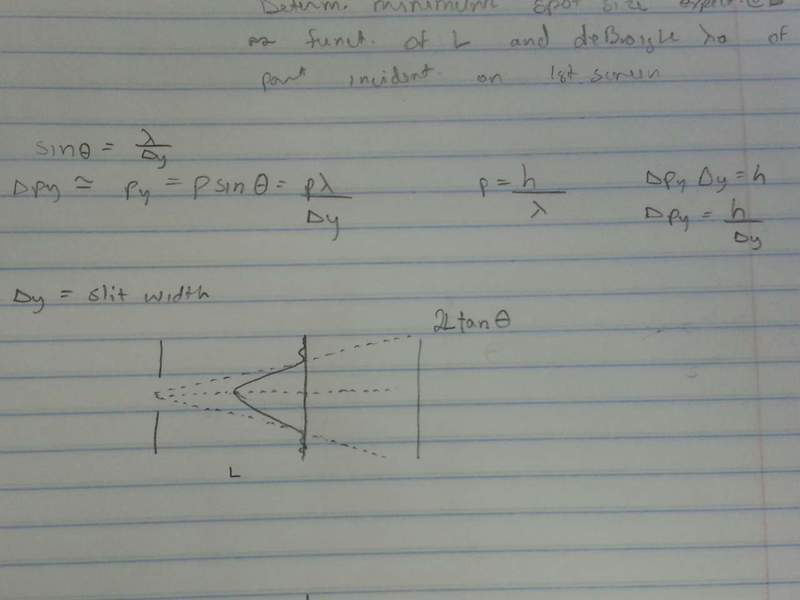 Determ. minimum spot size expected
as funct. of L and deBroigle λo of
part incident on 1st screen
sinθ = λ/Δy
Δpy ≅ py = psinθ = pλ/Δy p = h/λ Δpy Δy = h
Δpy = h/Δy
Δy = slit width
2Ltanθ
L